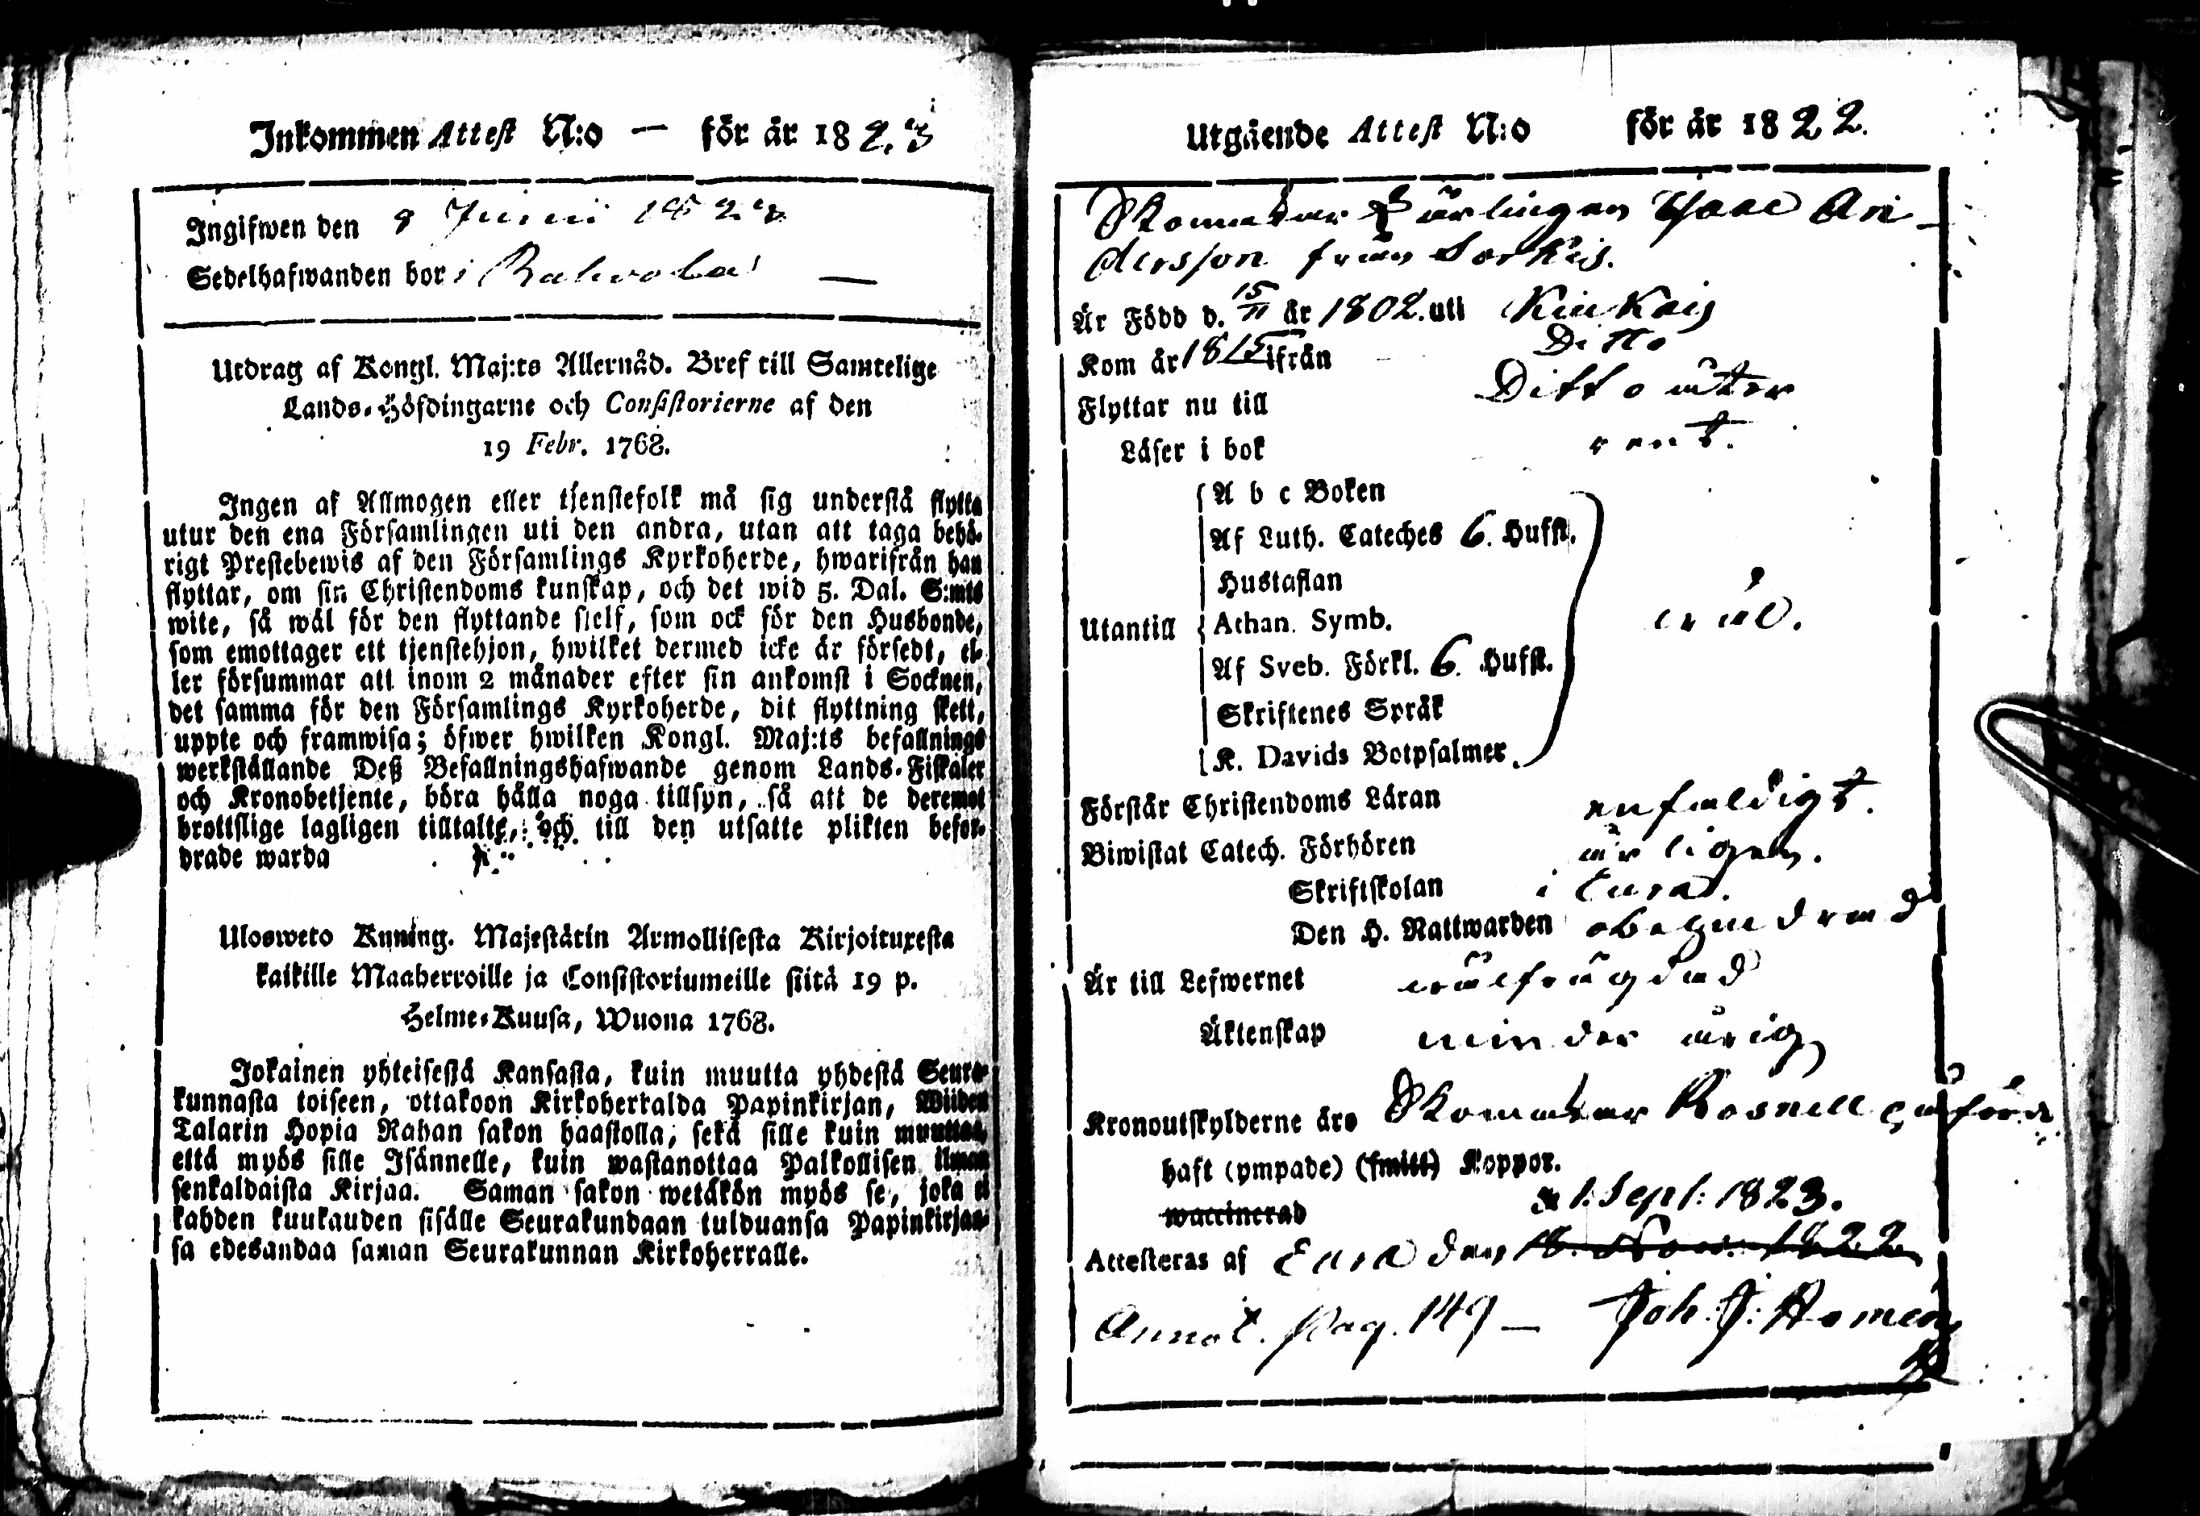 Inkommen Attest N:o — för år 1823
Ingifwen den 8 Junii 1823
Sedelhafwanden bor i —
Utdrag af Kongl. Maj:ts Allernåd. Bref till Samtelige
Lands-Höfdingarne och Consistorierne af den
19 Febr. 1768.
Ingen af Allmogen eller tjenstefolk må sig understå flytta
utur den ena Församlingen uti den andra, utan att taga behö-
rigt Prestebewis af den Församlings Kyrkoherde, hwarifrån han
flyttar, om sin Christendoms kunskap, och det wid 5. Dal. S:mts
wite, så wäl för den flyttande sielf, som ock för den Husbonde,
som emottager ett tjenstehjon, hwilket dermed icke är försedt, el-
ler försummar att inom 2 månader efter sin ankomst i Socknen,
det samma för den Församlings Kyrkoherde, dit flyttning skett,
uppte och framwisa; öfwer hwilken Kongl. Maj:ts befallnings
werkställande Deß Befallningshafwande genom Lands-Fiskaler
och Kronobetjente, böra hålla noga tillsyn, så att de deremot
brottslige lagligen tilltalte, och till den utsatte plikten befor-
drade warda
Ulosweto Kuning. Majestätin Armollisesta Kirjoituxesta
kaikille Maaherroille ja Consistoriumeille siitä 19 p.
Helme-Kuusa, Wuona 1768.
Jokainen yhteisestä Kansasta, kuin muutta yhdestä Seura-
kunnasta toiseen, ottakoon Kirkoherralda Papinkirjan, Wiiden
Talarin Hopia Rahan sakon haastolla, sekä sille kuin muuttaa,
että myös sille Isännelle, kuin wastanottaa Palkollisen ilman
senkaldaista Kirjaa. Saman sakon wetäkön myös se, joka ei
kahden kuukauden sisälle Seurakundaan tulduansa Papinkirjaa-
sa edesandaa saman Seurakunnan Kirkoherralle.
Utgående Attest N:o för år 1822.
Skomakar Lärlingen Isaac An-
dersson från Sorkis.
Är Född d. 15/11 år 1802. uti Kiukais
Kom år 1815 ifrån Ditto
Flyttar nu till Ditto åter
Läser i bok rent.
A b c Boken
Af Luth. Cateches 6. Hufst.
Hustaflan
Utantill Athan. Symb. wäl.
Af Sveb. Förkl. 6. Hufst.
Skriftenes Språk
K. Davids Botpsalmer.
Förstår Christendoms Läran enfaldigt.
Biwistat Catech. Förhören årligen.
Skriftskolan i Eura.
Den H. Nattwarden obehindrad
Är till Lefwernet wälfrägdad
Äktenskap minder årig
Kronoutskylderne äro Skomakar Rosnell påförde
haft (ympade) (smitt) Koppor.
waccinerad d 1. Sept: 1823.
Attesteras af Eura den 18. Nov: 1822
Annot. Pag. 149 — Joh: J: Homén